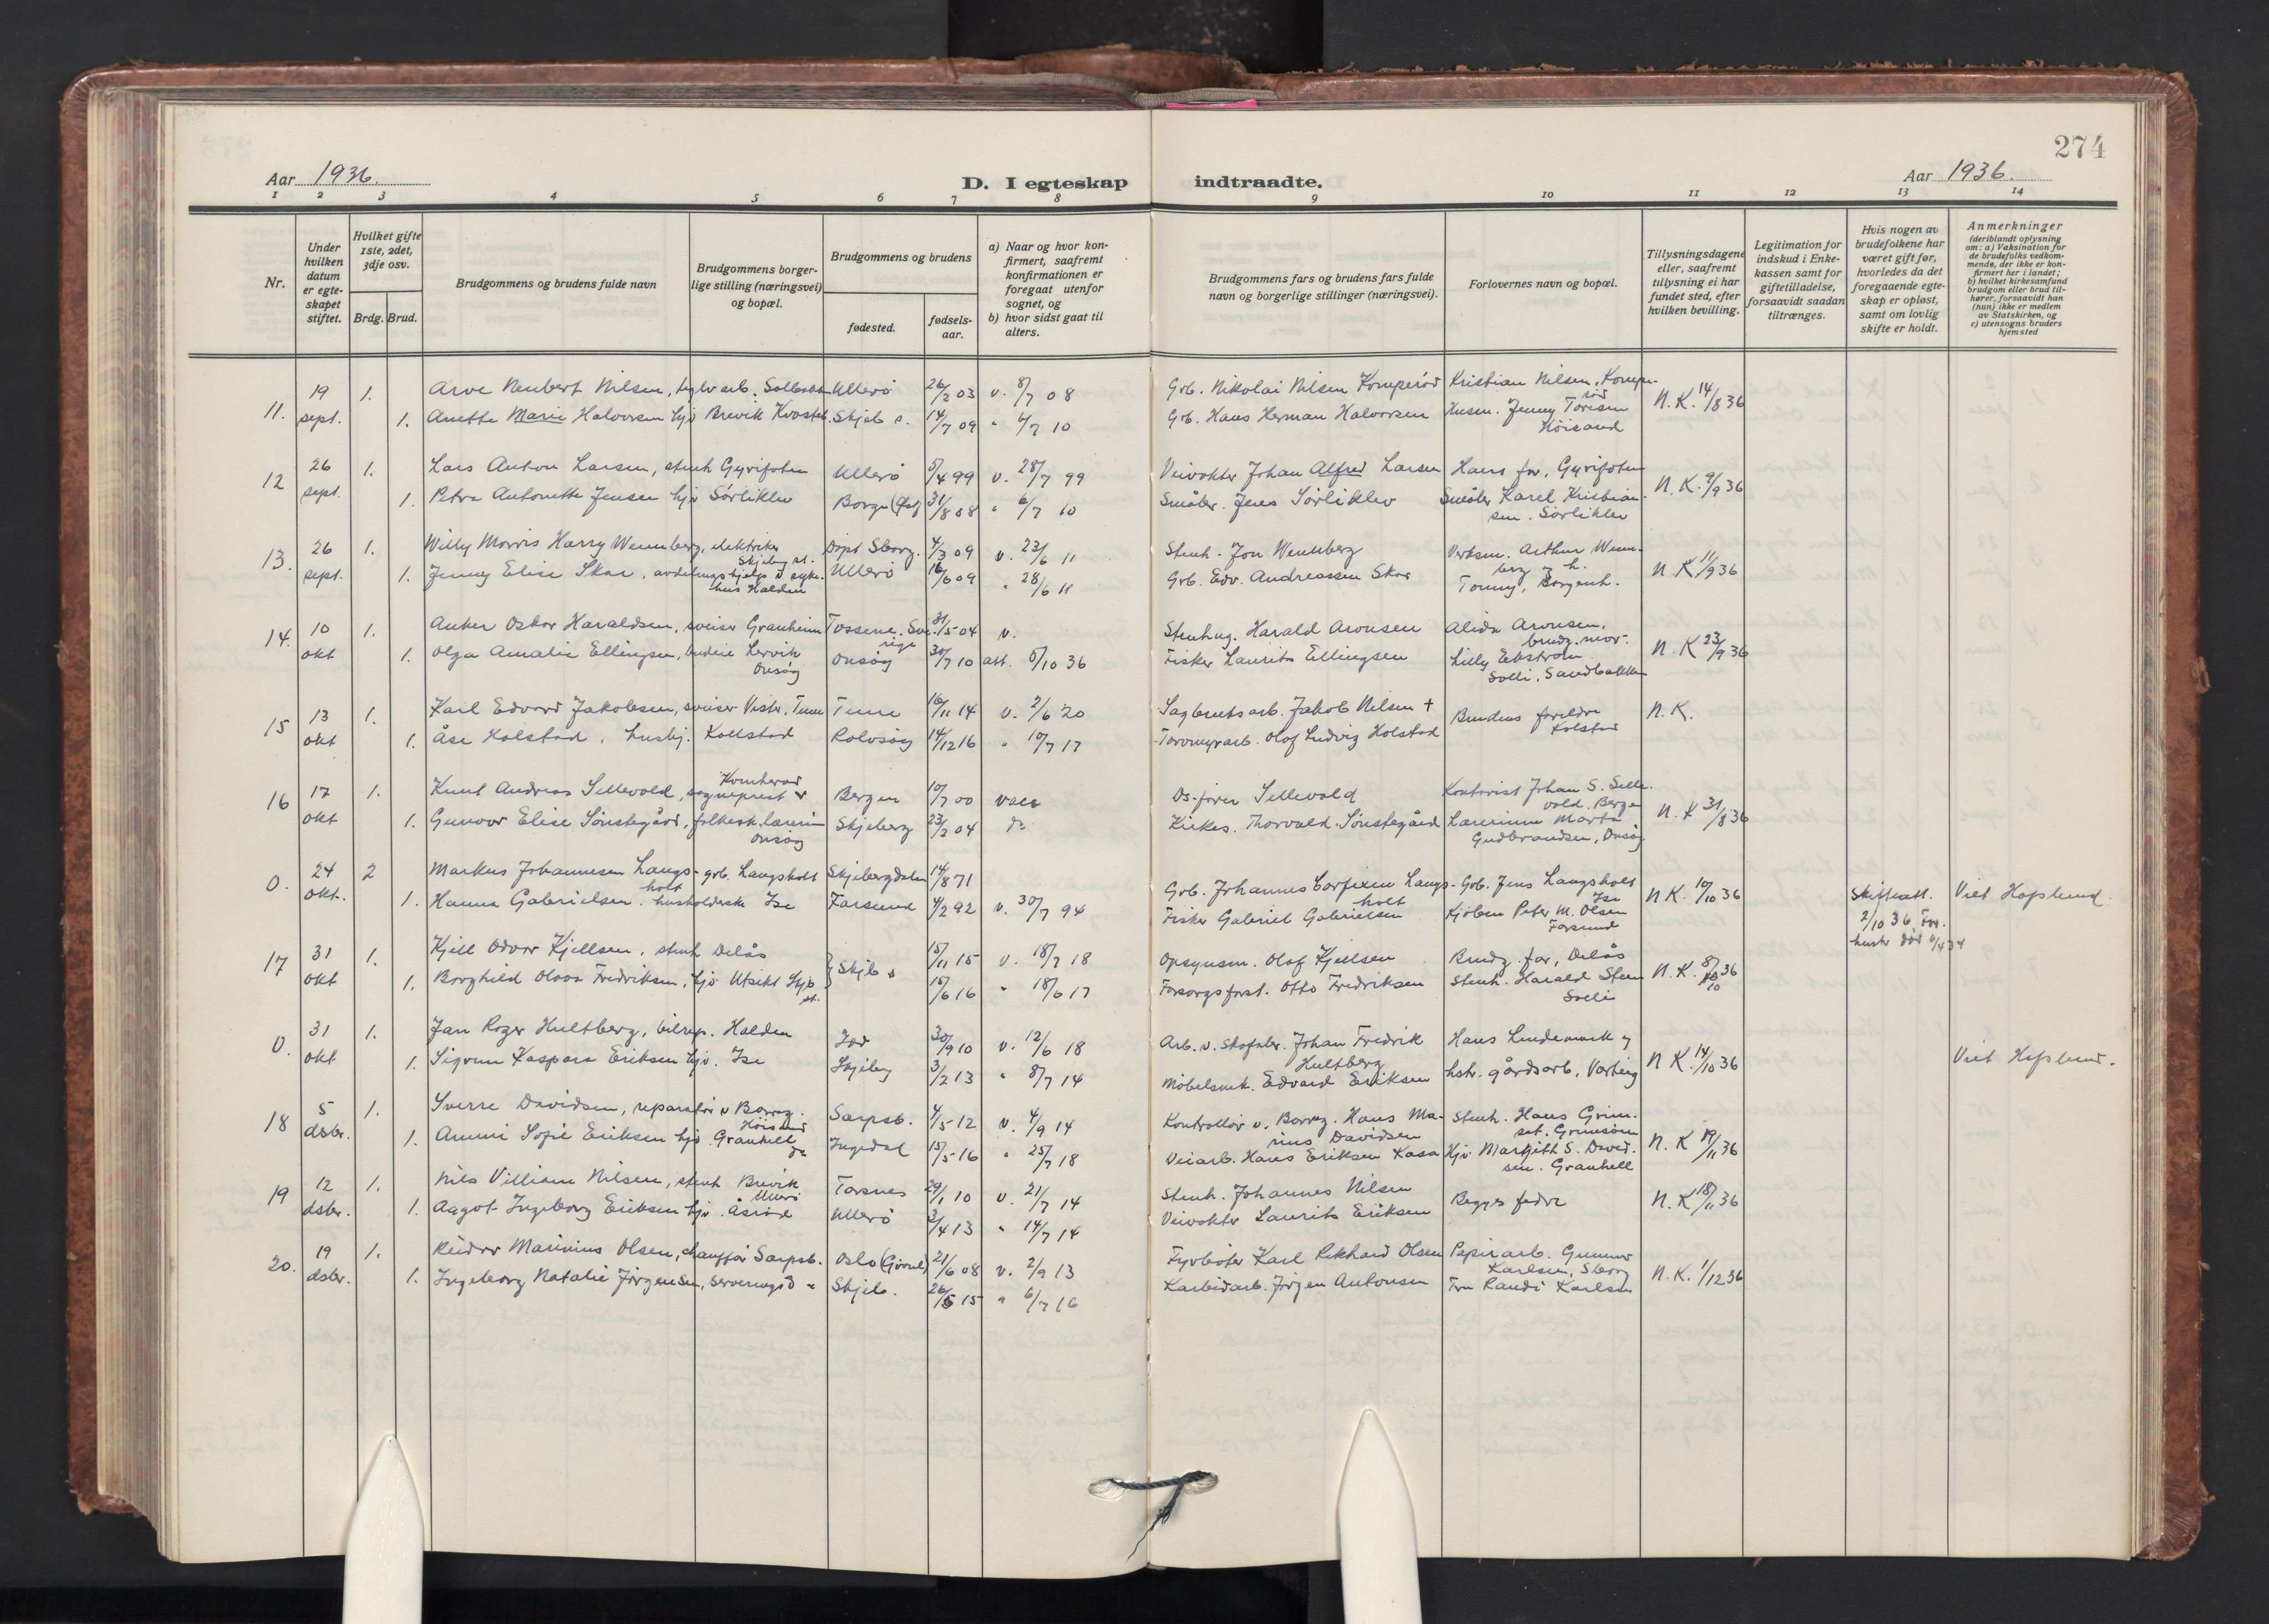 274
Aar 1936.
D. I egteskap indtraadte.
Aar 1936.
1 2 3 4 5 6 7 8 9 10 11 12 13 14
Nr.
Under hvilken datum er egte-skapet stiftet.
Hvilket gifte 1ste, 2det, 3dje osv.
Brdg. Brud.
Brudgommens og brudens fulde navn
Brudgommens borger-lige stilling (næringsvei) og bopæl.
Brudgommens og brudens
fødested.
fødsels-aar.
a) Naar og hvor kon-firmert, saafremt konfirmationen er foregaat utenfor sognet, og
b) hvor sidst gaat til alters.
Brudgommens fars og brudens fars fulde navn og borgerlige stillinger (næringsvei).
Forlovernes navn og bopæl.
Tillysningsdagene eller, saafremt tillysning ei har fundet sted, efter hvilken bevilling.
Legitimation for indskud i Enke-kassen samt for giftetilladelse, forsaavidt saadan tiltrænges.
Hvis nogen av brudefolkene har været gift før, hvorledes da det foregaaende egte-skap er opløst, samt om lovlig skifte er holdt.
Anmerkninger (deriblandt oplysning om: a) Vaksination for de brudefolks vedkom-mende, der ikke er kon-firmert her i landet; b) hvilket kirkesamfund brudgom eller brud til-hører, forsaavidt han (hun) ikke er medlem av Statskirken, og c) utensogns bruders hjemsted
11. 19 sept. 1. Arve Neubert Nilsen, teglv.arb. Ullerö 26/2 03 v. 8/7 08 Grb. Nikolai Nilsen Kristian Nilsen, N.K. 14/8 36
1. Anette Marie Halvorsen hjv Brevik Skjeb. 14/7 09 " 4/7 10 Grb. Hans Herman Halvorsen Husm. Jenny Höisand
12 26 sept. 1. Lars Anton Larsen, stenh Ullerö 5/4 99 v. 28/7 99 Veivokter Johan Alfred Larsen Hans far, N.K. 9/9 36
1. Petra Antonette Jensen hjv Sörliklev Borge (Østf 31/8 08 " 6/7 10 Småbr. Jens Sörliklev Småbr Karel Kristian-sen. Sörliklev
13. 26 sept. 1. Willy Morris Harry Wennberg, elektriker Skjeberg st. Sborg. 4/3 09 v. 23/6 11 Stenh. Jon Wennberg Verksm. Arthur Wenn-berg og h. N.K 11/9 36
1. Jenny Elise Skar, avdelingshjelp v syke-hus Halden Ullerö 16/6 09 " 28/6 11 Grb. Edv. Andreassen Skar Borgenh.
14. 10 okt 1. Anker Oskar Haraldsen, sveiser Granheim Tossene. Sve-rige 31/5 04 v. Stenhug. Harald Aronsen Alida Aronsen, brudg. mor. N.K 23/9 36
1. Olga Amalie Ellingsen, budeie Lervik Onsöy Onsöy 30/7 10 att. 5/10 36 Fisker Laurits Ellingsen Lilly Ekström Solli, Sandbakken
15 13 okt 1. Karl Edvard Jakobsen, sveiser Vister, Tune Tune 16/11 14 v. 2/6 20 Sagbruksarb. Jakob Nilsen + Brudens foreldre Kolstad N.K.
1. Åse Kolstad, hushj. Kolstad Rolvsöy 14/12 16 " 10/7 17 Torvmyrarb. Olof Ludvig Kolstad
16 17 okt 1. Knut Andreas Sellevold, sogneprest Kornherad Bergen 10/7 00 vaks Sellevold Kontorist Johan S. Selle-vold. Bergen N.K 31/8 36
1. Gunvor Elise Sönstegård, folkesk.lærerin Onsöy Skjeberg 23/2 04 do Kirkes. Thorvald Sönstegård Lærerinne Marta Gudbrandsen, Onsöy
0. 24 okt. 2 Markus Johannesen Langs-holt grb. Langsholt Skjebergdalen 14/8 71 Grb. Johannes Langs-holt Grb. Jens Langsholt Ise N.K. 10/10 36 Skifteatt. 2/10 36 For. hustr död 6/4 34 Viet Hafslund.
1. Hanna Gabrielsen. husholderske Ise Farsund 4/2 92 v. 30/7 94 Fisker Gabriel Gabrielsen Kjöbm Peter M. Olsen Farsund
17 31 okt 1. Kjell Odvar Kjellsen, stenh Delås Skjeb 15/11 15 v. 18/7 18 Opsynsm. Olof Kjellsen Brudg. far, Delås N.K. 8/10 36
1. Borghild Olava Fredriksen, hjv Utsikt Skjb st. 15/6 16 " 18/6 17 Forsorgsforst. Otto Fredriksen Stenh. Harald Steen Solli
0. 31 okt 1. Jan Roger Hultberg, bilrep. Halden Idd 30/9 10 v. 12/6 18 Arb. v. Skofabr. Johan Fredrik Hultberg Hans Lindemark og N.K. 14/10 36 Viet Hafslund.
1. Sigrun Kaspara Eriksen hjv. Ise Skjeberg 3/2 13 " 8/7 14 Möbelsnek. Edvard Eriksen hstr. gårdsarb, Varteig
18 5 dsbr. 1. Sverre Davidsen, reparatör v Borreg. Höisand Sarpsb. 4/5 12 v. 4/9 14 Kontrollör v. Borreg. Hans Ma-rius Davidsen Stenh. Hans Grim-N.K 19/11 36
1. Ammi Sofie Eriksen hjv. Granhell Ingedal 15/5 16 " 25/7 18 Veiarb. Hans Eriksen Kasa Hjv Margith S. David-sen. Granhell
19 12 dsbr. 1. Nils Villiam Nilsen, stenh Brevik Ullerö Torsnes 29/1 10 v. 21/7 14 Stenh. Johannes Nilsen Begges fedre N.K 18/11 36
1. Aagot Ingeborg Eriksen hjv. Åsröd Ullerö 3/4 13 " 14/7 14 Veivokter Laurits Eriksen
20. 19 dsbr. 1. Reidar Marinius Olsen, chauffør Sarpsb. Oslo 21/6 08 v. 2/9 13 Fyrböter Karl Rikhard Olsen Papirarb. Gunnar Karlsen, Sborg N.K. 1/12 36
1. Ingeborg Natalie Jörgensen, serveringsd " Skjeb. 26/5 15 " 6/7 16 Karbidarb. Jörgen Antonsen Fru Randi Karlsen